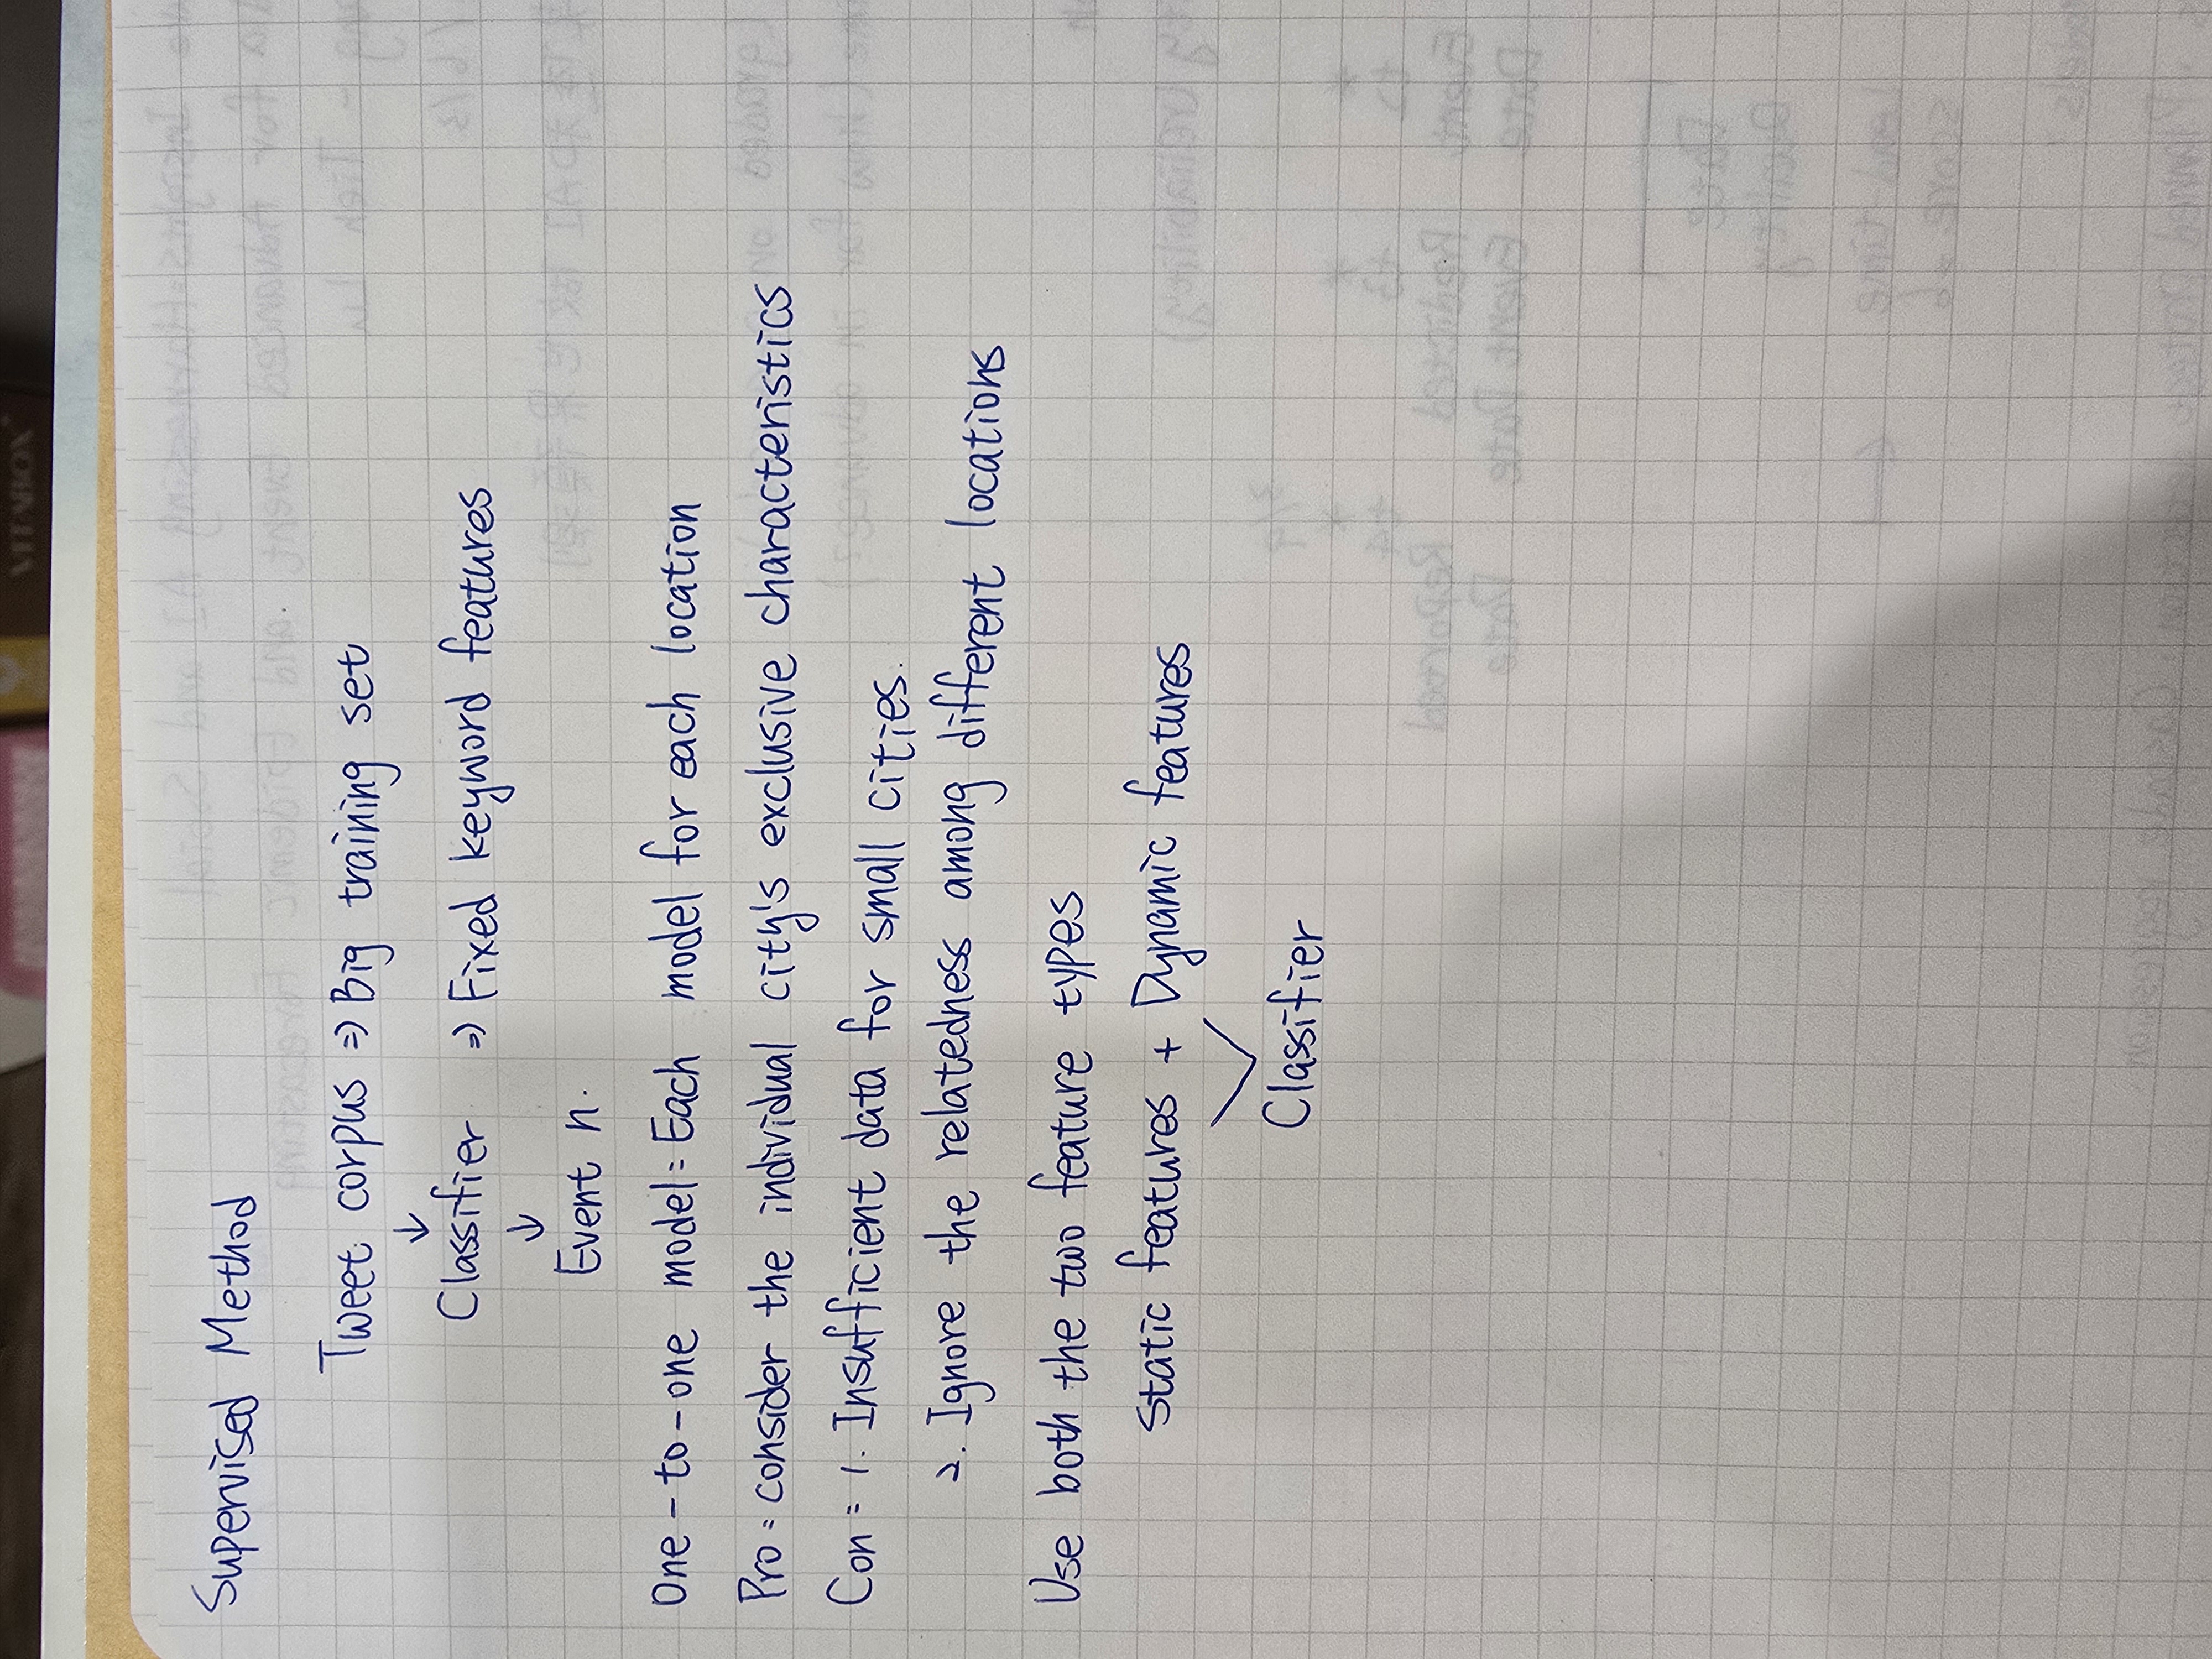 VITABOX
Supervised Method
Tweet corpus ⇒ Big training set
↓
Classifier ⇒ Fixed keyword features
↓
Event n.
One-to-one model: Each model for each location
Pro: consider the individual city's exclusive characteristics
Con: 1. Insufficient data for small cities.
2. Ignore the relatedness among different locations
Use both the two feature types
Static features + Dynamic features
Classifier